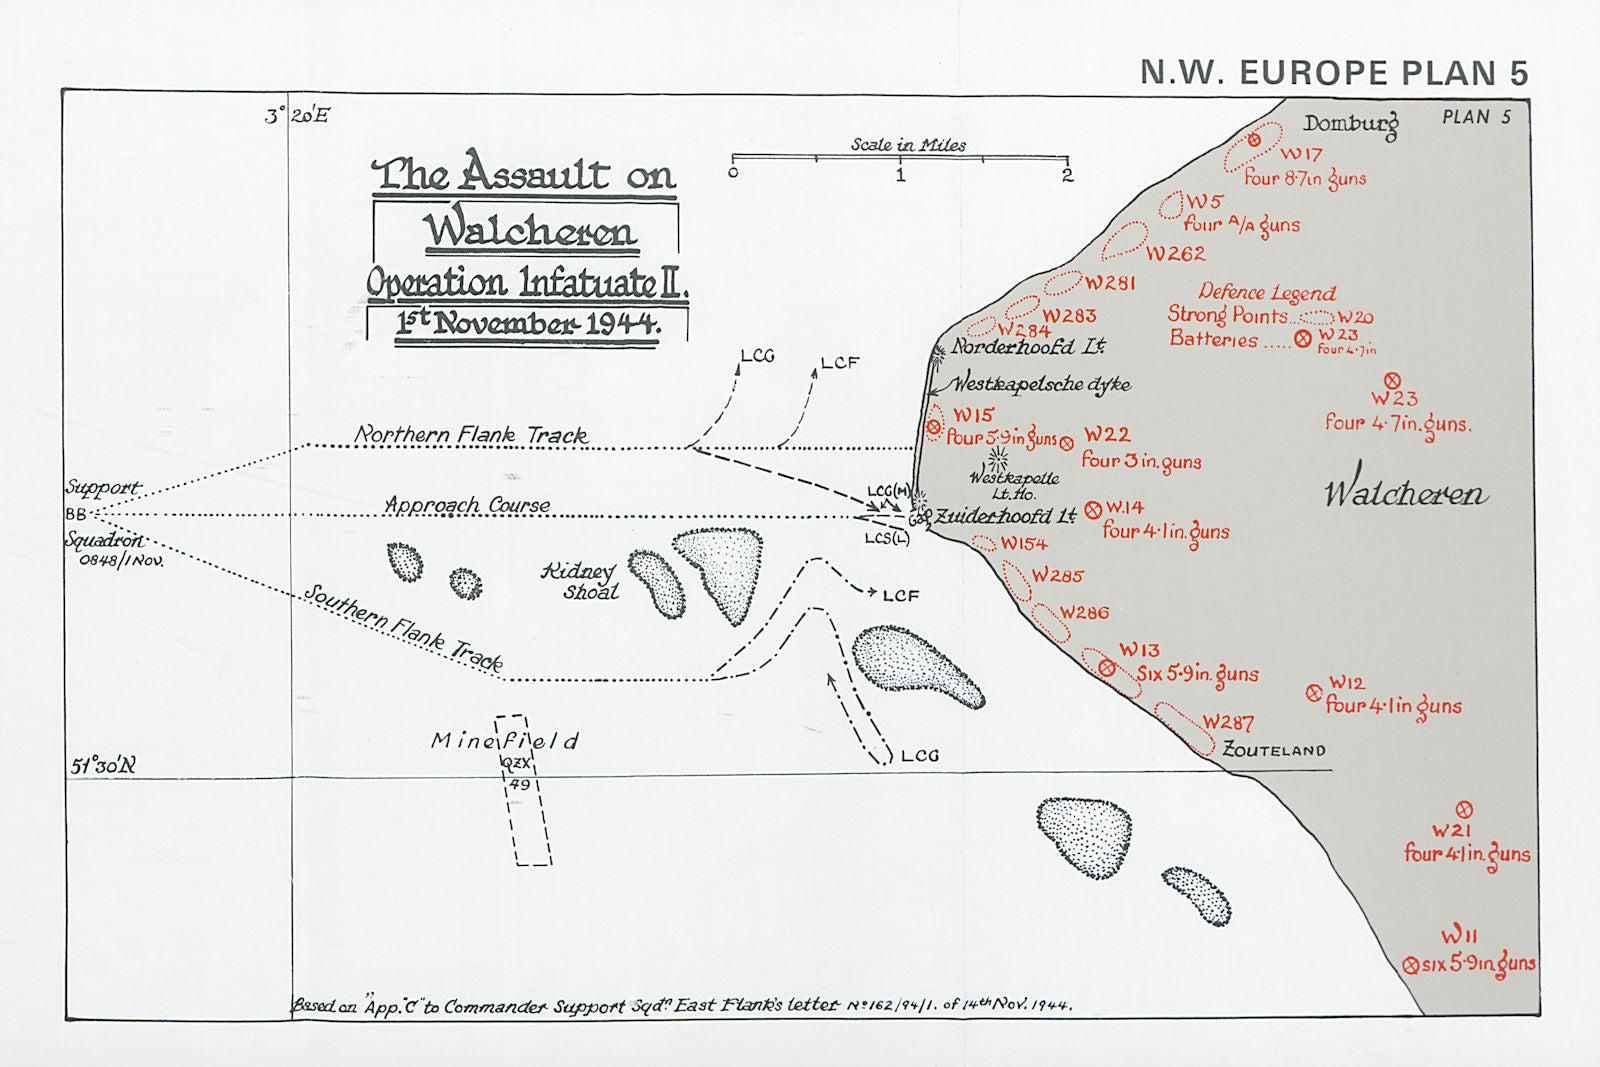 N.W. EUROPE PLAN 5
PLAN 5
3° 20'E
The Assault on
Walcheren
Operation Infatuate II.
1st November 1944.
Scale in Miles
0 1 2
Domburg
W17
four 8·7in guns
W5
four A/A guns
W262
W281
W283
W284
Defence Legend
Strong Points... W20
Batteries ..... W23
four 4·7in
Norderhoofd Lt.
Westkapelsche dyke
W23
four 4·7in. guns.
LCG
LCF
W15
four 5·9in guns
W22
four 3 in. guns
Westkapelle
Lt. Ho.
Walcheren
Northern Flank Track
Support
BB
Squadron
0848/1 Nov.
Approach Course
LCG(M)
LCS(L)
Gap
Zuiderhoofd Lt.
W.14
four 4·1in. guns
W154
W285
W286
Kidney
Shoal
LCF
Southern Flank Track
W13
Six 5·9in. guns
W12
four 4·1in guns
W287
ZOUTELAND
Minefield
QZX
49
LCG
51°30'N
W21
four 4·1in. guns
W11
six 5·9in. guns
Based on "App. "C" to Commander Support Sqdn. East Flank's letter No 162/94/1. of 14th Nov. 1944.